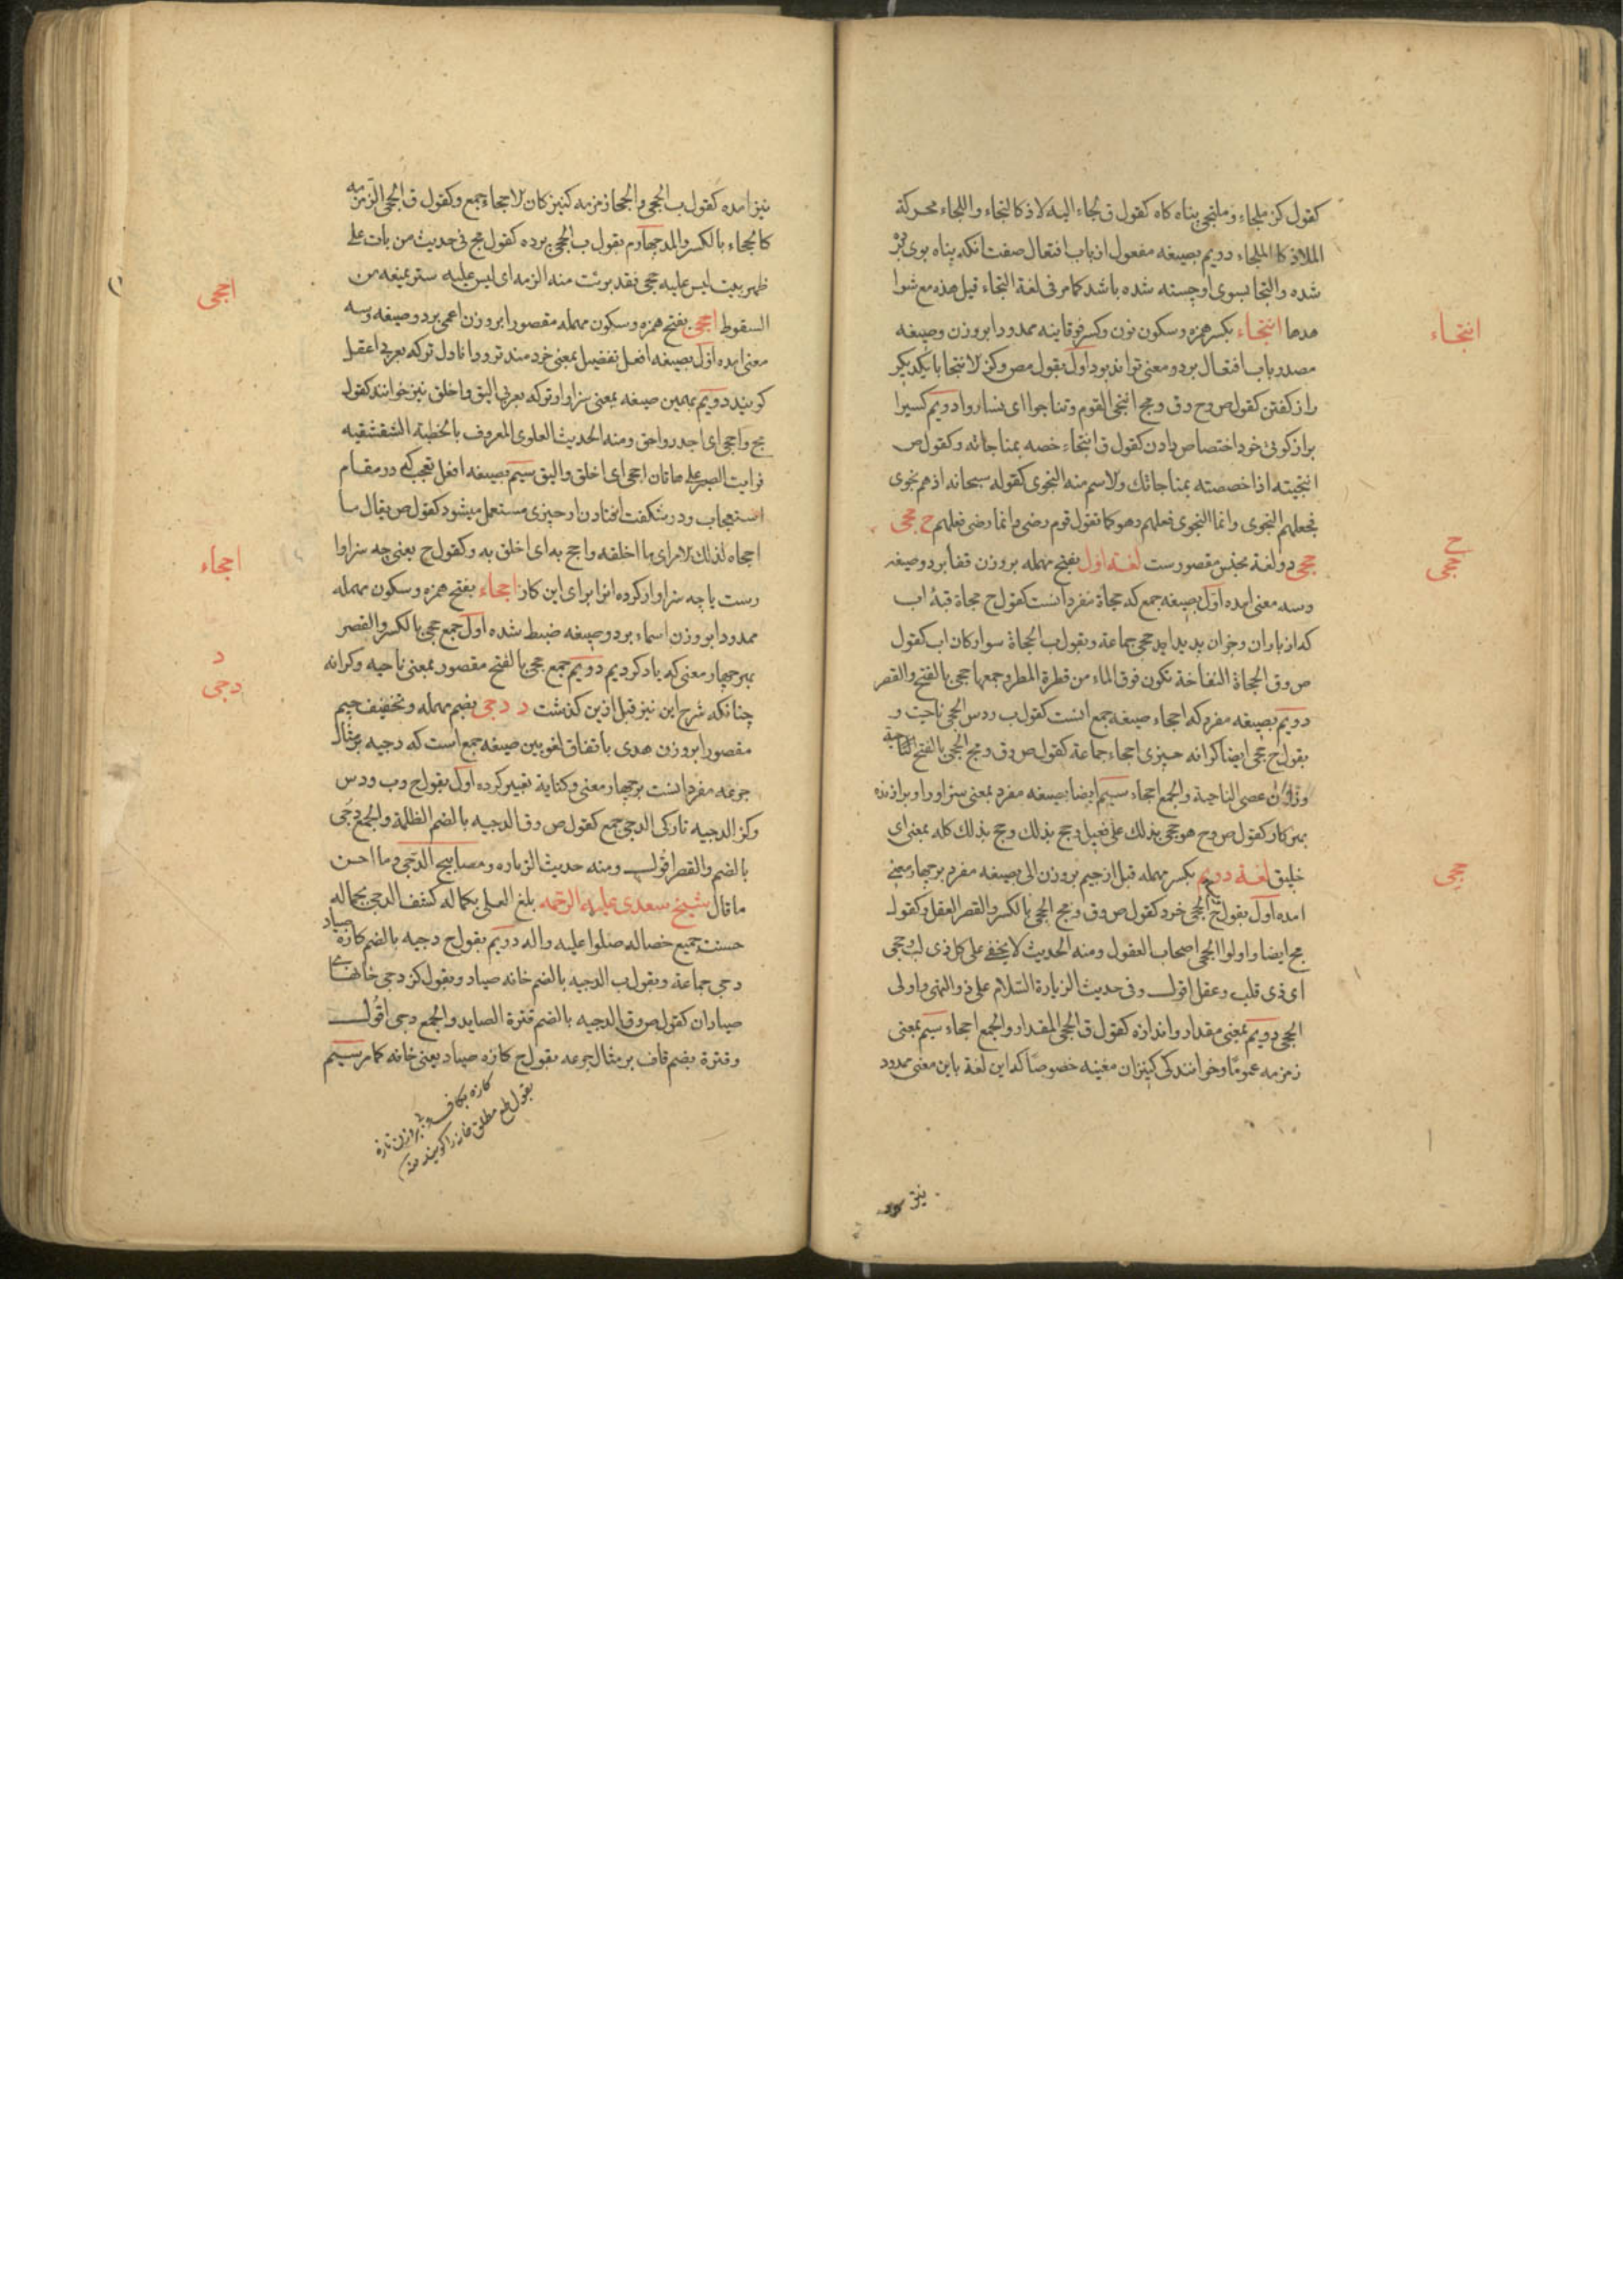 كقول كنز ملجاء و ملتجى پناه كاه كقول ق لجاء اليه لاذ كالتجاء واللجاء محركة
الملاذ كا الملجاء دويم بصيغه مفعول از باب افتعال صفت انكه پناه بوى برده
شده والتجا بسوى او جسته شده باشد كمامر فى لغة التجاء قيل هذه مع شوا
هدها انتجاء بكسر همزه وسكون نون وكسر فوقانيه ممدودا بر وزن وصيغه
انتجاء
مصدر باب افتعال بر دو معنى تواند بود اول بقول مص وكنز لانتجا با يكديكر
راز كفتن كقول ص وح وق ومج انتجى القوم وتناجوا اى تساروا دويم كسيرا
براز كوئى خود اختصاص دادن كقول ق انتجاء خصه بمناجاته وكقول ص
انتجيته اذا خصصته بمناجاتك ولاسم منه النجوى كقوله سبحانه اذ هم نجوى
فجعلهم النجوى وانما النجوى فعلهم وهو كما تقول قوم رضى وانما رضى فعلهم ح حجى
ح
حجى دو لغة بجنس مقصورست لغة اول بفتح مهمله بر وزن قفا بر دو صيغه
حجى
وسه معنى امده اول بصيغه جمع كه حجاة مفرد انست كقول ج حجاة قبهٔ اب
كه از باران و جزان پديد ايد حجى جماعة وبقول ب الحجاة سواركان اب كقول
ص وق الحجاة النفاخة تكون فوق الماء من قطرة المطر وجمعها حجى بالفتح والقصر
دويم بصيغه مفرد كه احجاء صيغه جمع انست كقول ب ودس الحجى ناحيت و
بقول ج حجى ايضا كرانه چيزى احجاء جماعة كقول ص وق ومج الحجى بالفتح الناحية
وزان عصى الناحية والجمع احجاء سيم ايضا بصيغه مفرد بمعنى سزاورا وبرازنده
بهر كار كقول ص وح هو حجى بذلك على فعيل وحج بذلك وحج بذلك كله بمعنى اى
خليق لغة دويم بكسر مهمله قبل از جيم بر وزن الى بصيغه مفرد بر چهار معنى
حجى
امده اول بقول ج الحجى خرد كقول ص وق ومج الحجى بالكسر والقصر العقل وكقول
مج ايضا واولوا الحجى اصحاب العقول ومنه الحديث لا يخفى على كل ذى لب وحجى
اى ذى قلب وعقل اقول وفى حديث الزيارة السلام على ذو النهى واولى
الحجى دويم بمعنى مقدار واندازه كقول ق الحجى المقدار والجمع احجاء سيم بمعنى
زمزمه عموما وخوانندكى كنيزان مغنيه خصوصا كه اين لغة باين معنى ممدود
نيز امده كقول ب الحجى والحجا زمزمه كنيزكان لاحجاء جمع وكقول ق الحجى الزمزمه
كالحجاء بالكسر والمد چهارم بقول ب الحجى پرده كقول مج فى حديث من بات على
ظهر بيت ليس عليه حجى فقد برئت منه الذمه اى ليس عليه ستر يمنعه من
السقوط احجى بفتح همزه وسكون مهمله مقصورا بر وزن اعمى بر دو صيغه وسه
احجى
معنى امده اول بصيغه افعل تفضيل بمعنى خردمند تر ووانا دل تر كه بعربى اعقل
كويند دويم بهمين صيغه بمعنى سزاوارتر كه بعربى اليق واخلق نيز خوانند كقول
مج واحجى اى اجدر واحق ومنه الحديث العلوى المعروف بالخطبة الشقشقيه
فرايت الصبر على هاتا احجى اى اخلق واليق سيم بصيغه افعل تعجب كه در مقام
استعجاب ودر شكفت افتادن از چيزى مستعمل ميشود كقول ص يقال ما
احجاه لذلك الامر اى ما اخلقه واحج به اى اخلق به وكقول ح يعنى چه سزاوا
رست يا چه سزاوار كرده انرا براى اين كار احجاء بفتح همزه وسكون مهمله
احجاء
ممدودا بر وزن اسماء بر دو صيغه ضبط شده اول جمع حجى بالكسر والقصر
بهر چهار معنى كه ياد كرديم دويم جمع حجى بالفتح مقصور بمعنى ناحيه وكرانه
چنانكه شرح اين نيز قبل ازين كذشت د دجى بضم مهمله وتخفيف جيم
د
دجى
مقصورا بر وزن هدى باتفاق لغويين صيغه جمع است كه دجيه بر مثال
جرعه مفرد انست بر چهار معنى وكناية تعبير كرده اول بقول ج وب ودس
وكنز الدجيه تاركى الدجى جمع كقول ص وق الدجيه بالضم الظلمة والجمع دجى
بالضم والقصر اقول ومنه حديث الزياره ومصابيح الدجى وما احسن
ما قال شيخ سعدى عليه الرحمه بلغ العلى بكماله كشف الدجى بجماله
حسنت جميع خصاله صلوا عليه واله دويم بقول ج دجيه بالضم كازهٔ صياد
دجى جماعة وبقول ب الدجيه بالضم خانه صياد وبقول كنز دجى خانهاى
صيادان كقول ص وق الدجيه بالضم قترة الصايد والجمع دجى اقول
وقترة بضم قاف بر مثال جرعه بقول ج كازه صياد يعنى خانه كمامر سيم
كازه بكاف بر وزن تازه
بقول مطلق خانه را كويند منه